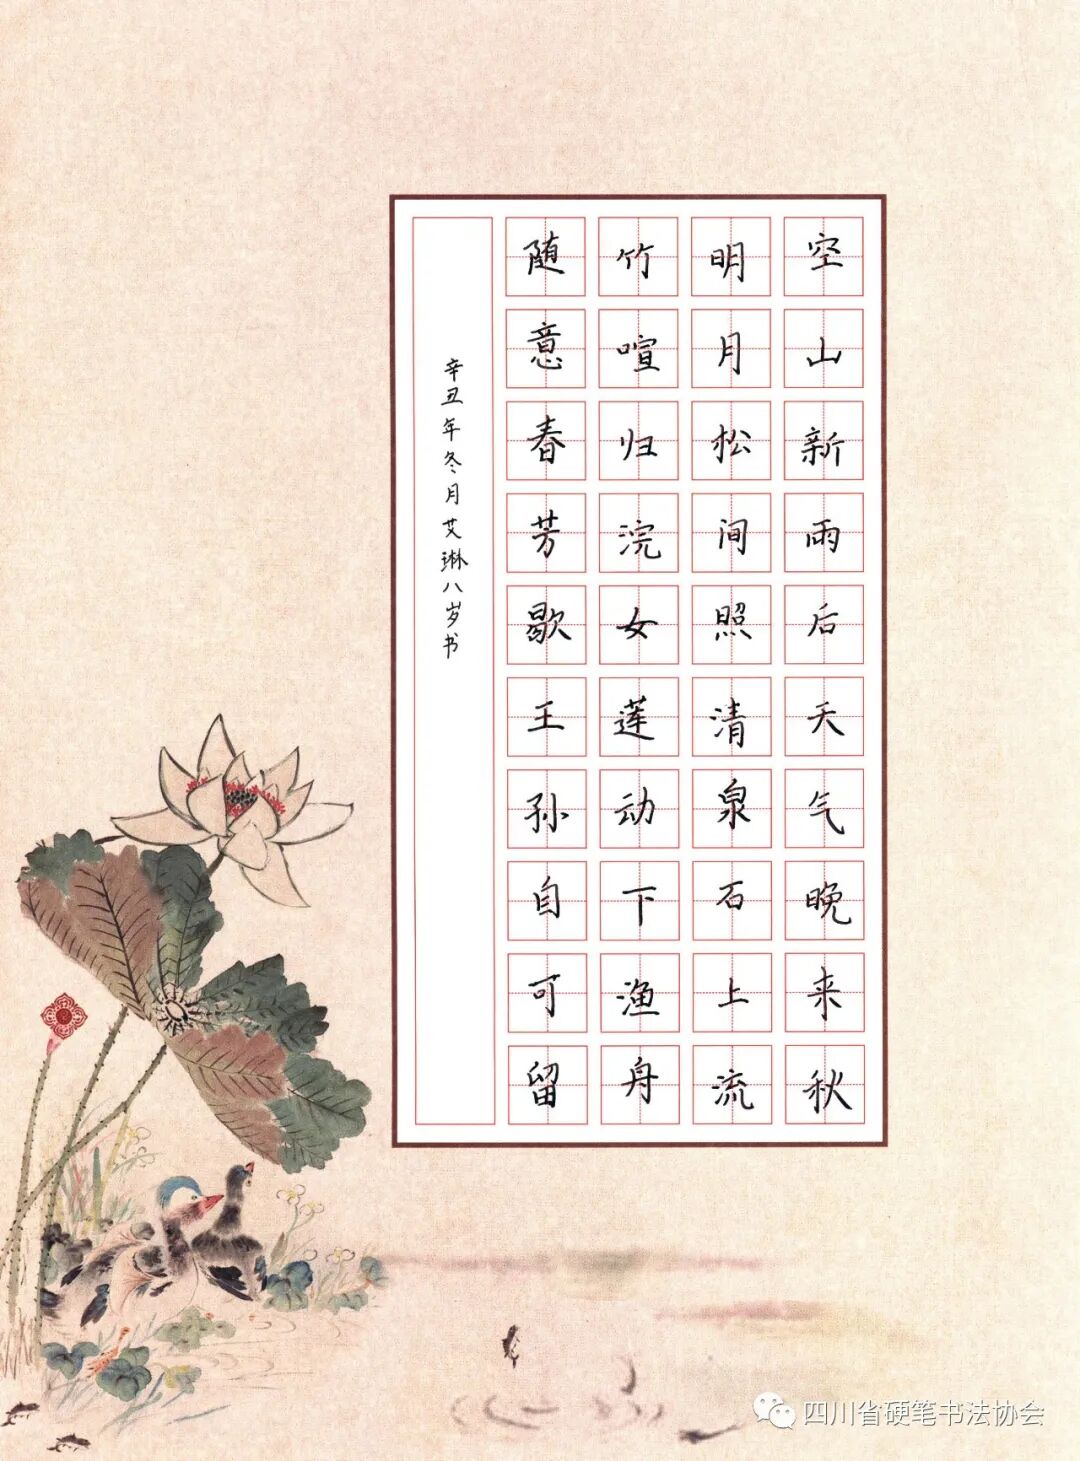 空山新雨后天气晚来秋
明月松间照清泉石上流
竹喧归浣女莲动下渔舟
随意春芳歇王孙自可留
辛丑年冬月艾琳八岁书
四川省硬笔书法协会